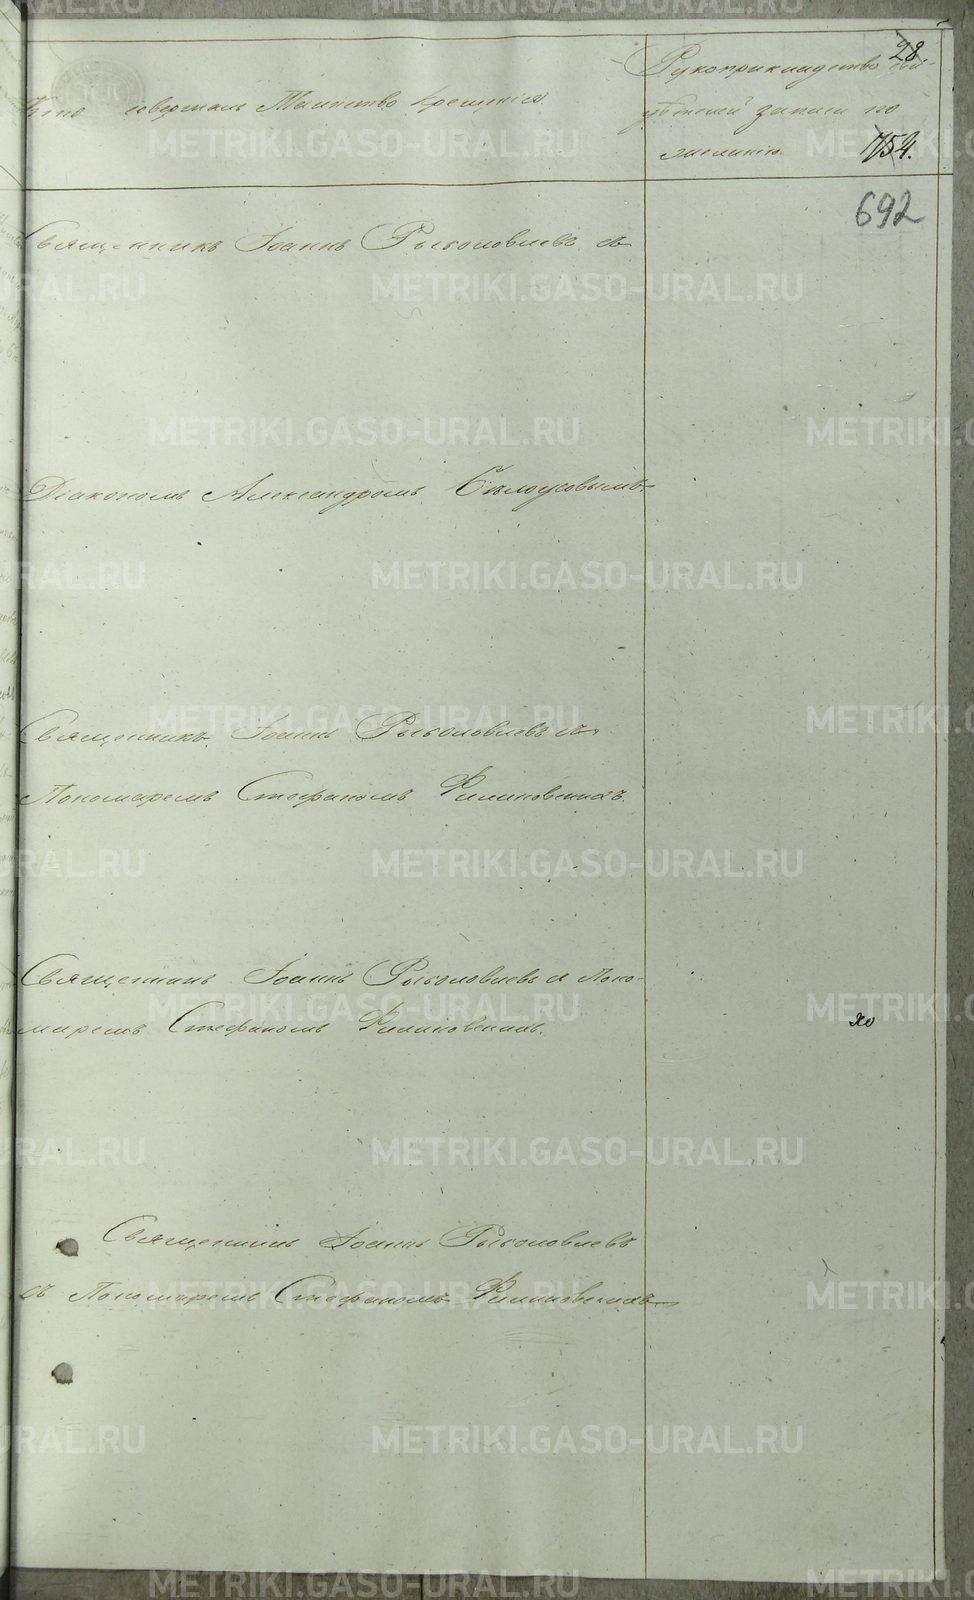 28
Кто совершалъ Таинство крещенія.
Рукоприкладство сви-
дѣтелей записи по
желанію.
1754.
692
Священникъ Іоаннъ Рыболовлевъ съ
Діакономъ Александромъ Бѣлоусовымъ
Священникъ Іоаннъ Рыболовлевъ съ
Пономаремъ Стефаномъ Филиновскимъ.
Священникъ Іоаннъ Рыболовлевъ и Поно-
маремъ Стефаномъ Филиновскимъ.
Священникъ Іоаннъ Рыболовлевъ
съ Пономаремъ Стефаномъ Филиновскимъ
METRIKI.GASO-URAL.RU